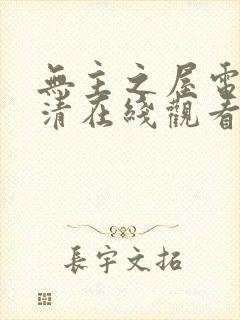 無主之屋電
清在綫觀看
長宇文拓